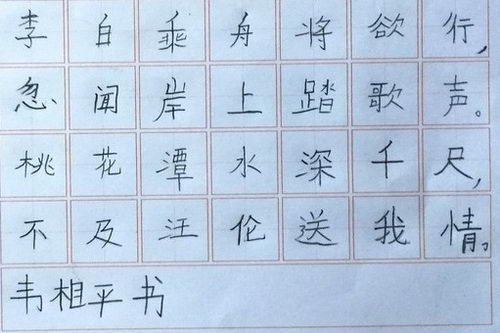 李白乘舟将欲行,
忽闻岸上踏歌声。
桃花潭水深千尺,
不及汪伦送我情。
韦相平书